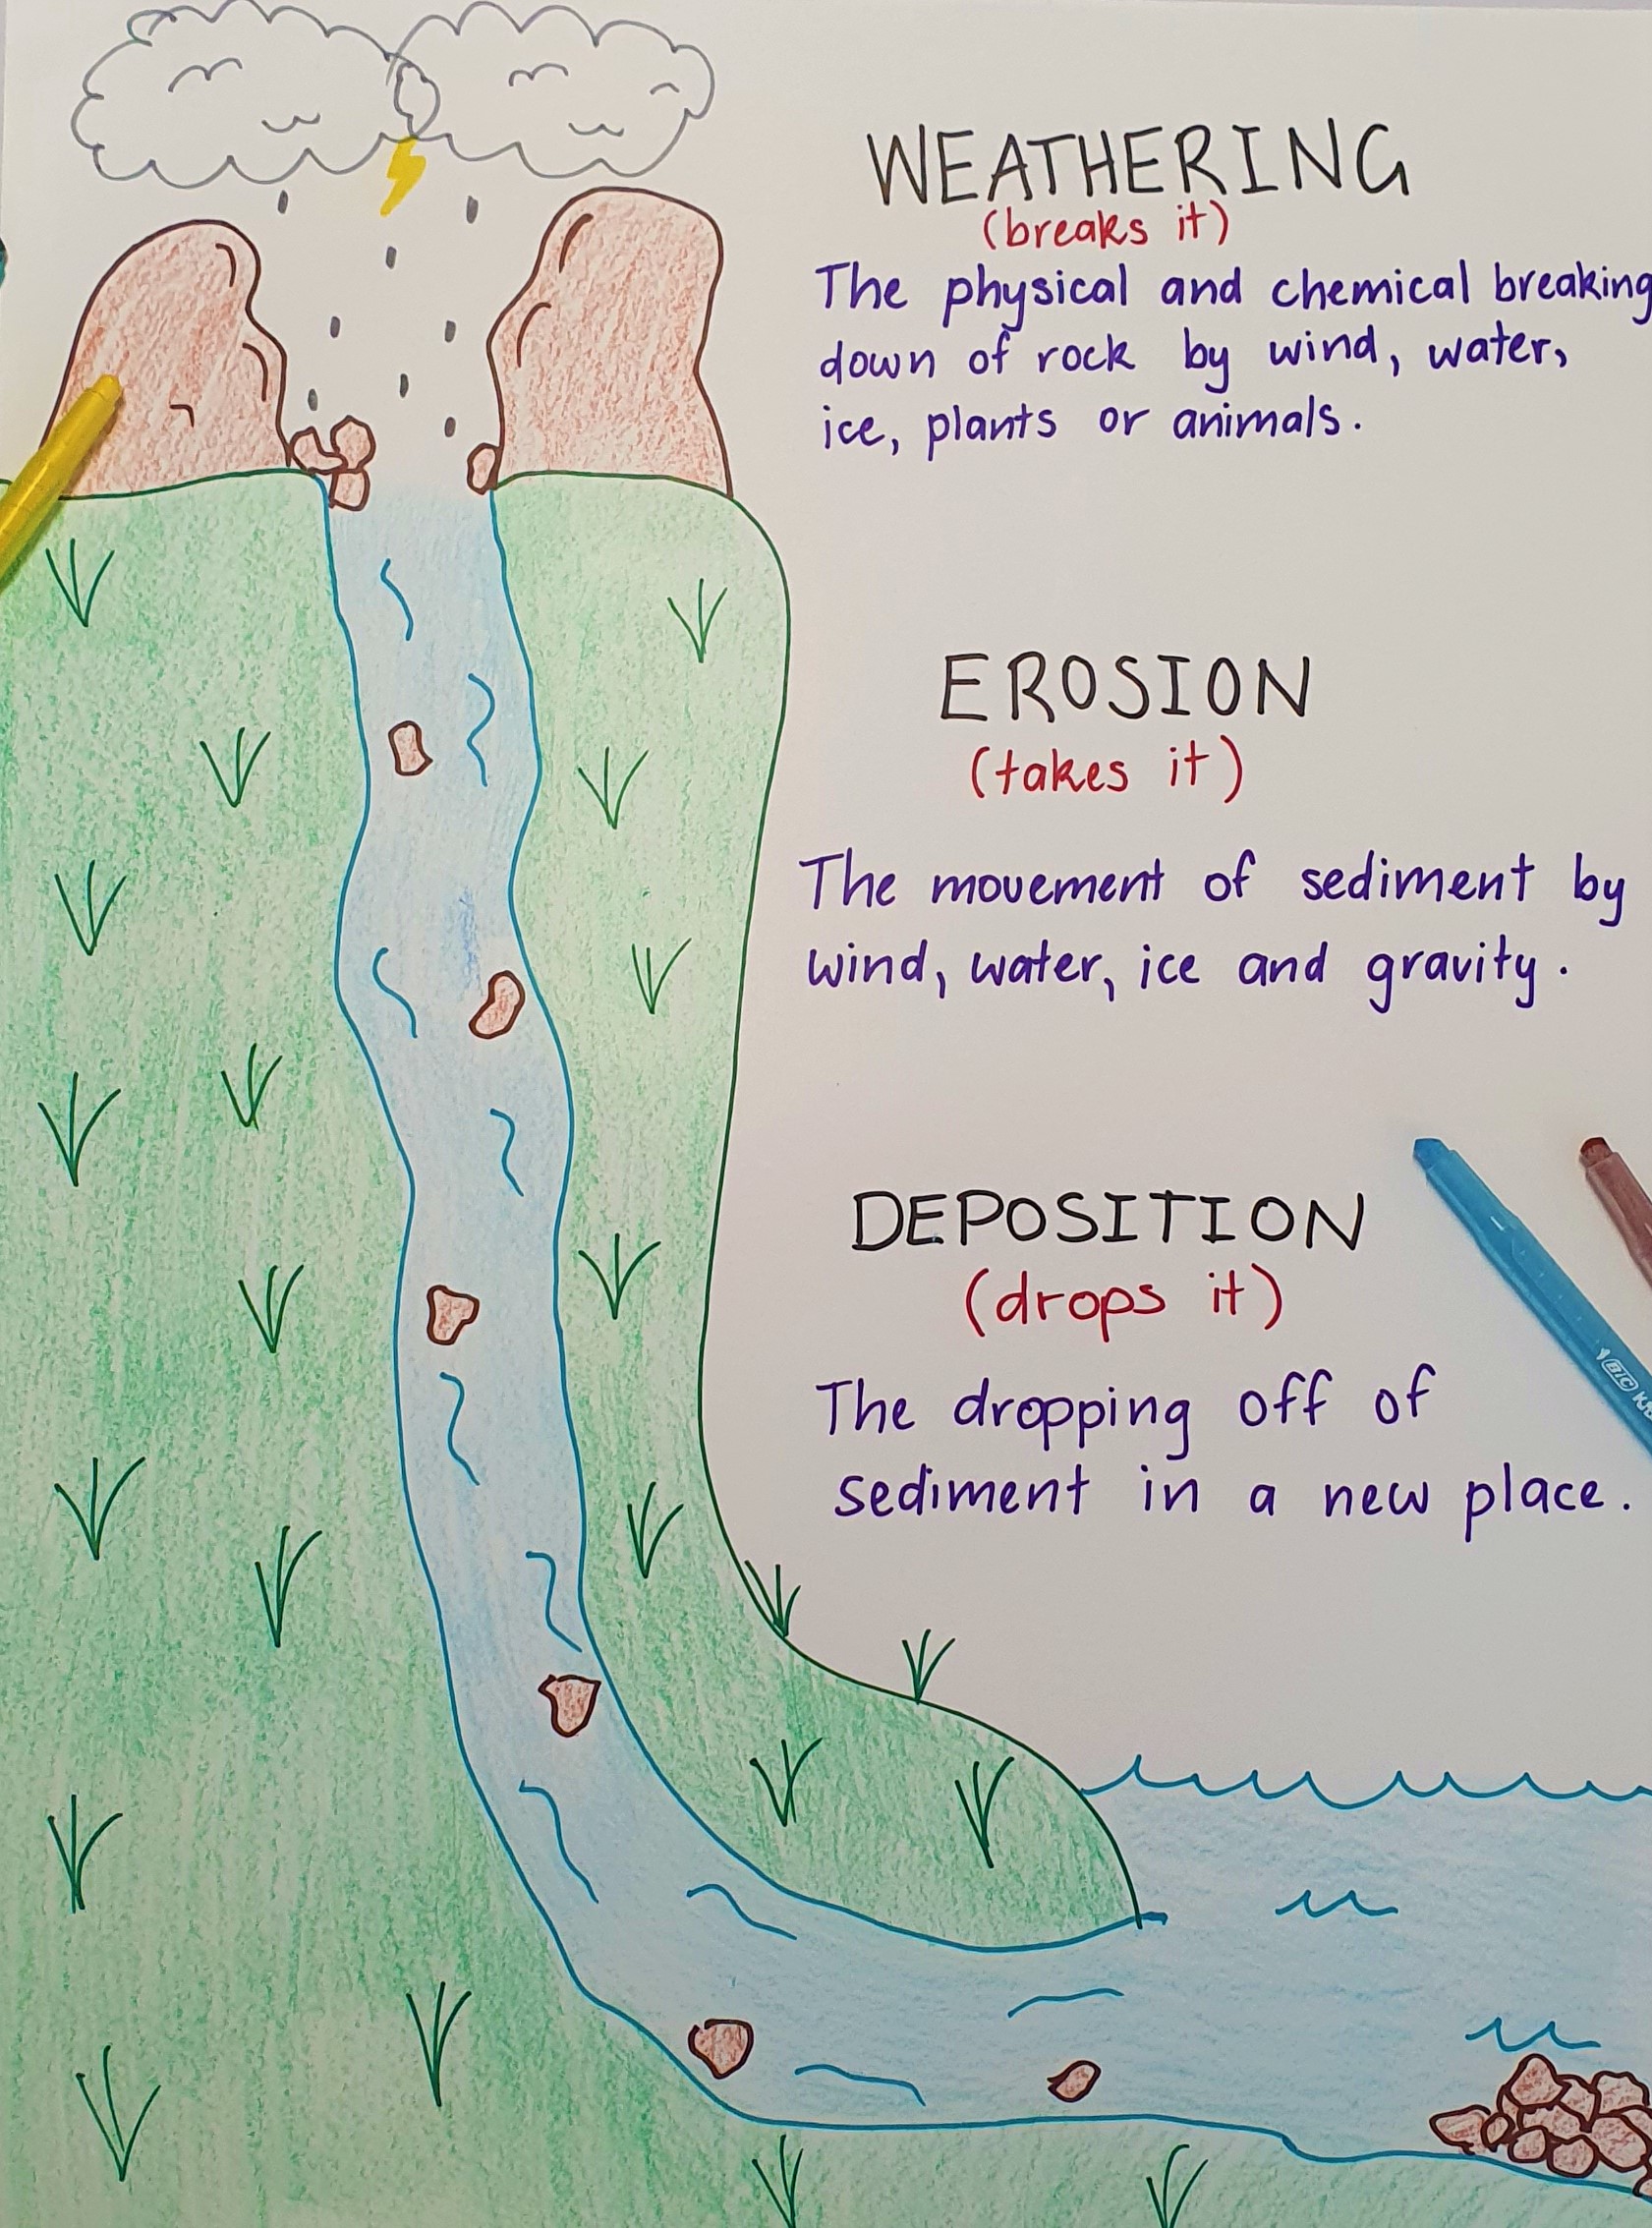 WEATHERING
(breaks it)
The physical and chemical breaking
down of rock by wind, water,
ice, plants or animals.
EROSION
(takes it)
The movement of sediment by
wind, water, ice and gravity.
DEPOSITION
(drops it)
The dropping off of
sediment in a new place.
BIC